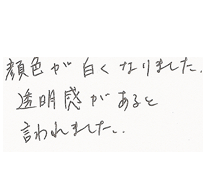 顔色が白くなりました.
透明感があると
言われました..